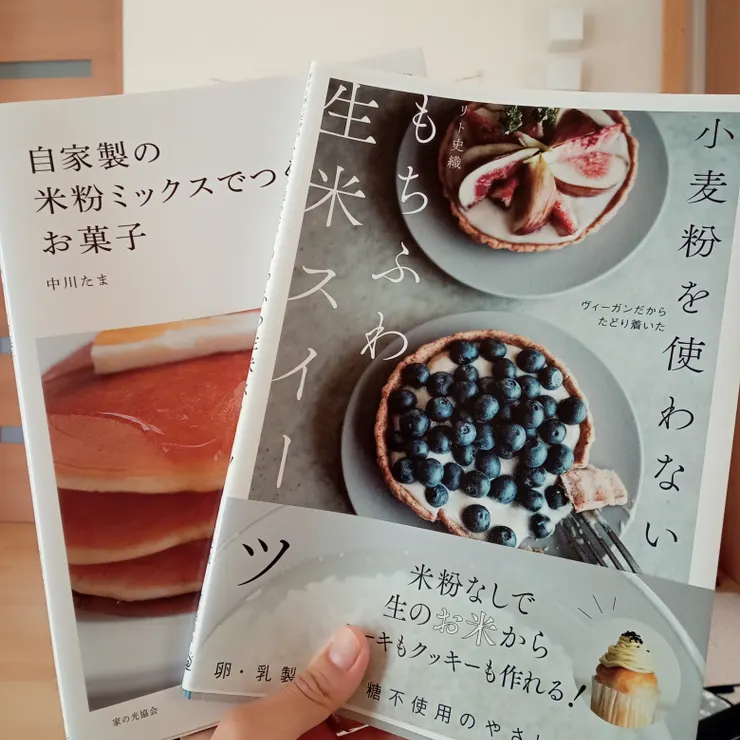 自家製の
米粉ミックスでつ
お菓子
中川たま
家の光協会
小麦粉を使わない
ヴィーガンだから
たどり着いた
もちふわ
生米スイーツ
リト史織
米粉なしで
生のお米から
ーキもクッキーも作れる！
卵・乳製
糖不使用のやさし